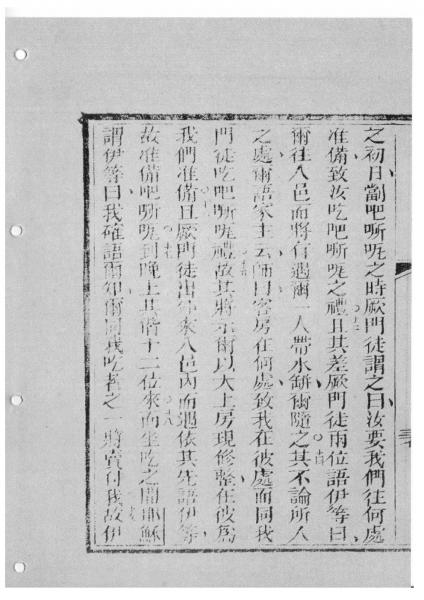 之初日劏吧嘶呢之時厥門徒謂之曰汝要我們往何處
准備致汝吃吧嘶呢之禮且其差厥門徒兩位語伊等曰
爾往入邑而將有遇爾一人帶水缾爾隨之其不論所入
之處爾語家主云師曰客房在何處致我在彼處而同我
門徒吃吧嘶呢禮故其將示爾以大上房現修整在彼為
我們准備且厥門徒出年來入邑內而遇依其先語伊等
故准備吧嘶呢到晚上其將十二位來而坐吃之間耶穌
謂伊等曰我確語爾知爾同我吃者之一將賣付我故伊